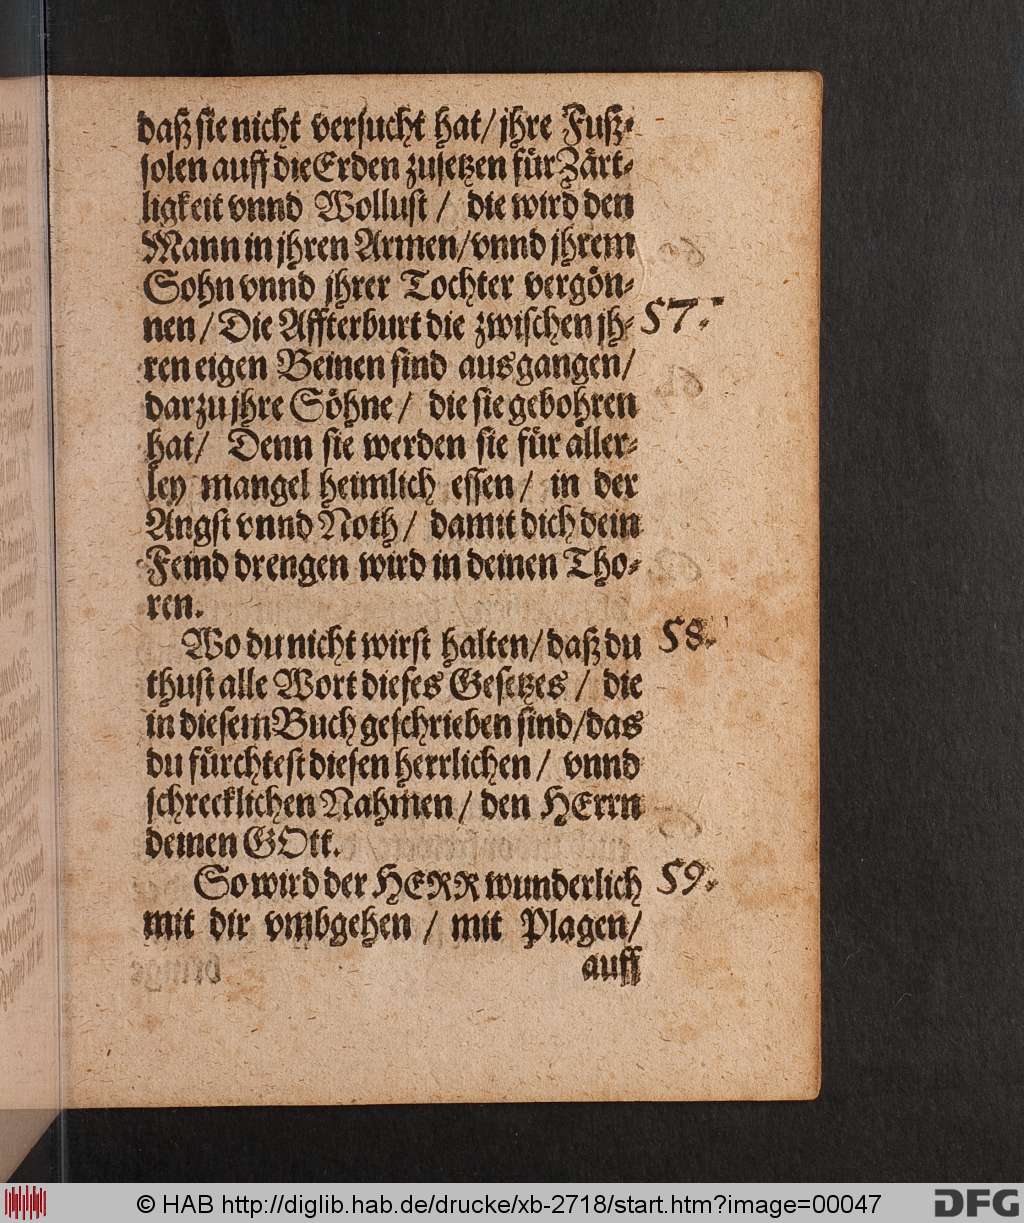 daß sie nicht versucht hat/ jhre Fuß-
solen auff die Erden zusetzen für Zärt-
ligkeit vnnd Wollust / die wird den
Mann in jhren Armen/ vnnd jhrem
Sohn vnnd jhrer Tochter vergön-
nen / Die Affterburt die zwischen jh- 57.
ren eigen Beinen sind ausgangen/
darzu jhre Söhne / die sie gebohren
hat/ Denn sie werden sie für aller-
ley mangel heimlich essen / in der
Angst vnnd Noth / damit dich dein
Feind drengen wird in deinen Tho-
ren.
Wo du nicht wirst halten/ daß du 58.
thust alle Wort dieses Gesetzes / die
in diesem Buch geschrieben sind/ das
du fürchtest diesen herrlichen / vnnd
schrecklichen Nahmen / den HErrn
deinen GOtt.
So wird der HERR wunderlich 59.
mit dir vmbgehen / mit Plagen/
auff
© HAB http://diglib.hab.de/drucke/xb-2718/start.htm?image=00047
DFG